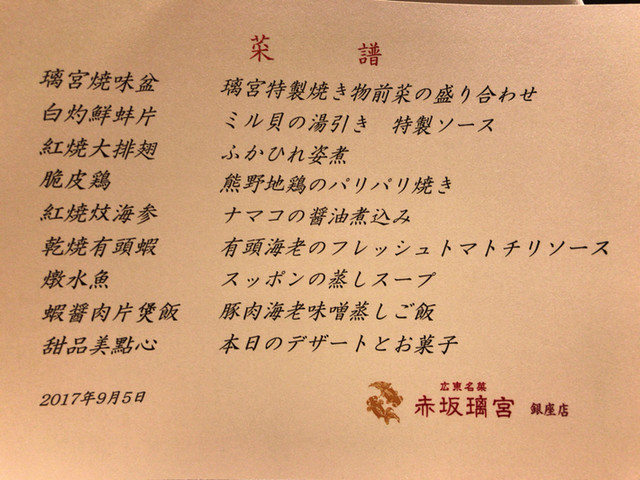 菜譜
璃宮焼味盆 璃宮特製焼き物前菜の盛り合わせ
白灼鮮蚌片 ミル貝の湯引き 特製ソース
紅焼大排翅 ふかひれ姿煮
脆皮鶏 熊野地鶏のパリパリ焼き
紅焼炆海参 ナマコの醤油煮込み
乾焼有頭蝦 有頭海老のフレッシュトマトチリソース
燉水魚 スッポンの蒸しスープ
蝦醤肉片煲飯 豚肉海老味噌蒸しご飯
甜品美點心 本日のデザートとお菓子
2017年9月5日
広東名菜
赤坂璃宮 銀座店